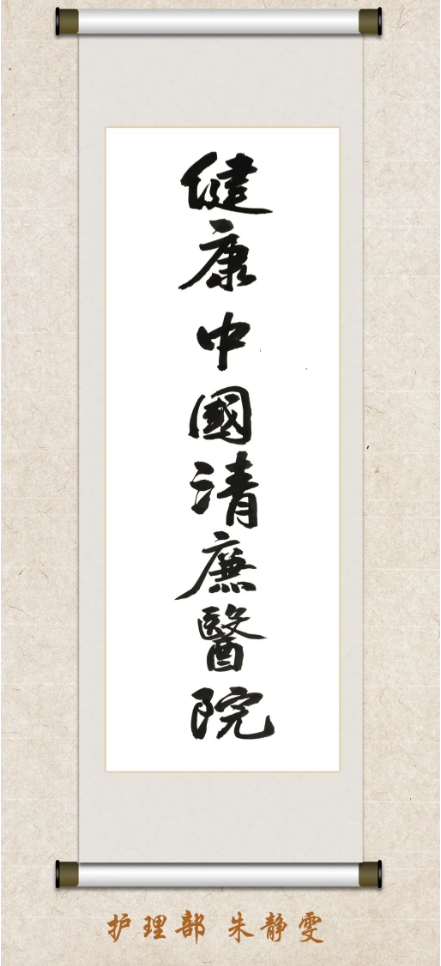 健康中國清廉醫院
护理部 朱静雯